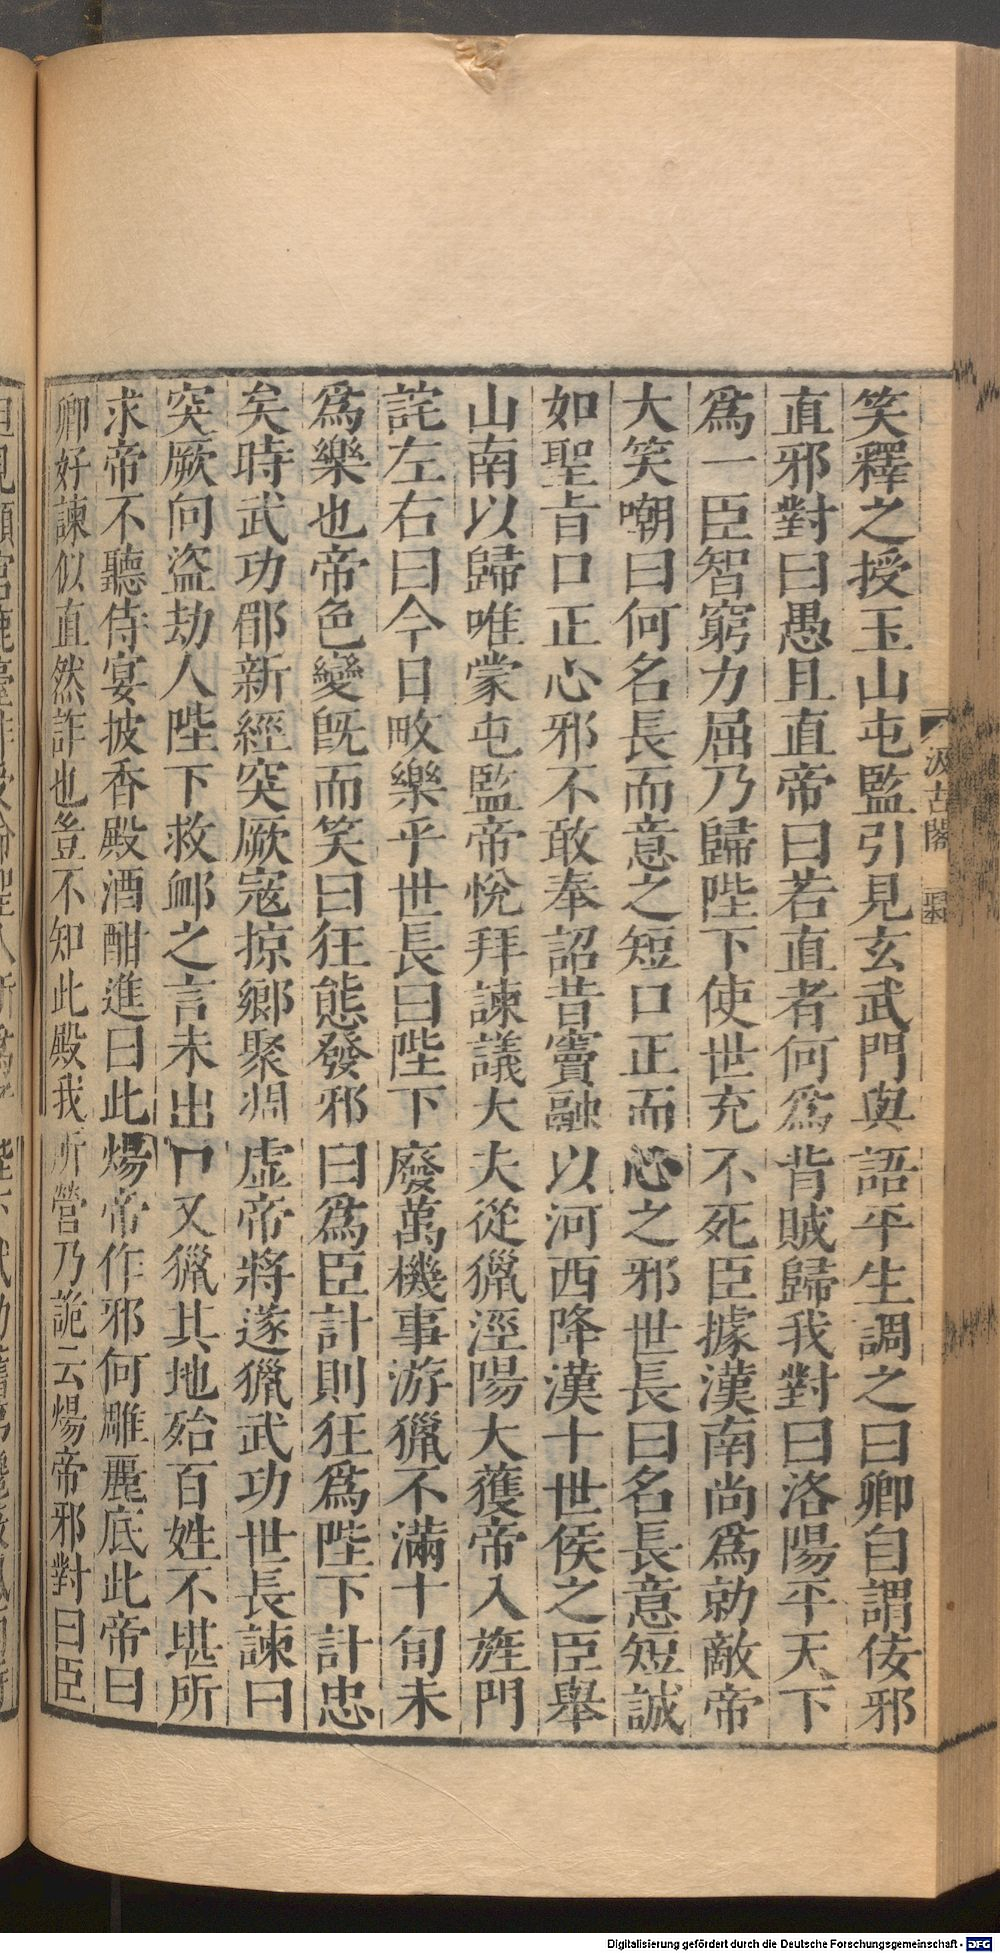 笑釋之授玉山屯監引見玄武門與語平生調之曰卿自謂佞邪
直邪對曰愚且直帝曰若直者何爲背賊歸我對曰洛陽平天下
爲一臣智窮力屈乃歸陛下使世充不死臣據漢南尚爲勍敵帝
大笑嘲曰何名長而意之短口正而心之邪世長曰名長意短誠
如聖旨口正心邪不敢奉詔昔竇融以河西降漢十世侯之臣舉
山南以歸唯蒙屯監帝悅拜諫議大夫從獵涇陽大獲帝入旌門
詫左右曰今日畋樂乎世長曰陛下廢萬機事游獵不滿十旬未
爲樂也帝色變旣而笑曰狂態發邪曰爲臣計則狂爲陛下計忠
矣時武功郿新經突厥寇掠鄉聚凋虛帝將遂獵武功世長諫曰
突厥向盜劫人陛下救卹之言未出口又獵其地殆百姓不堪所
求帝不聽侍宴披香殿酒酣進曰此煬帝作邪何雕麗底此帝曰
卿好諫似直然詐也豈不知此殿我所營乃詭云煬帝邪對曰臣
汲古閣
Digitalisierung gefördert durch die Deutsche Forschungsgemeinschaft - DFG